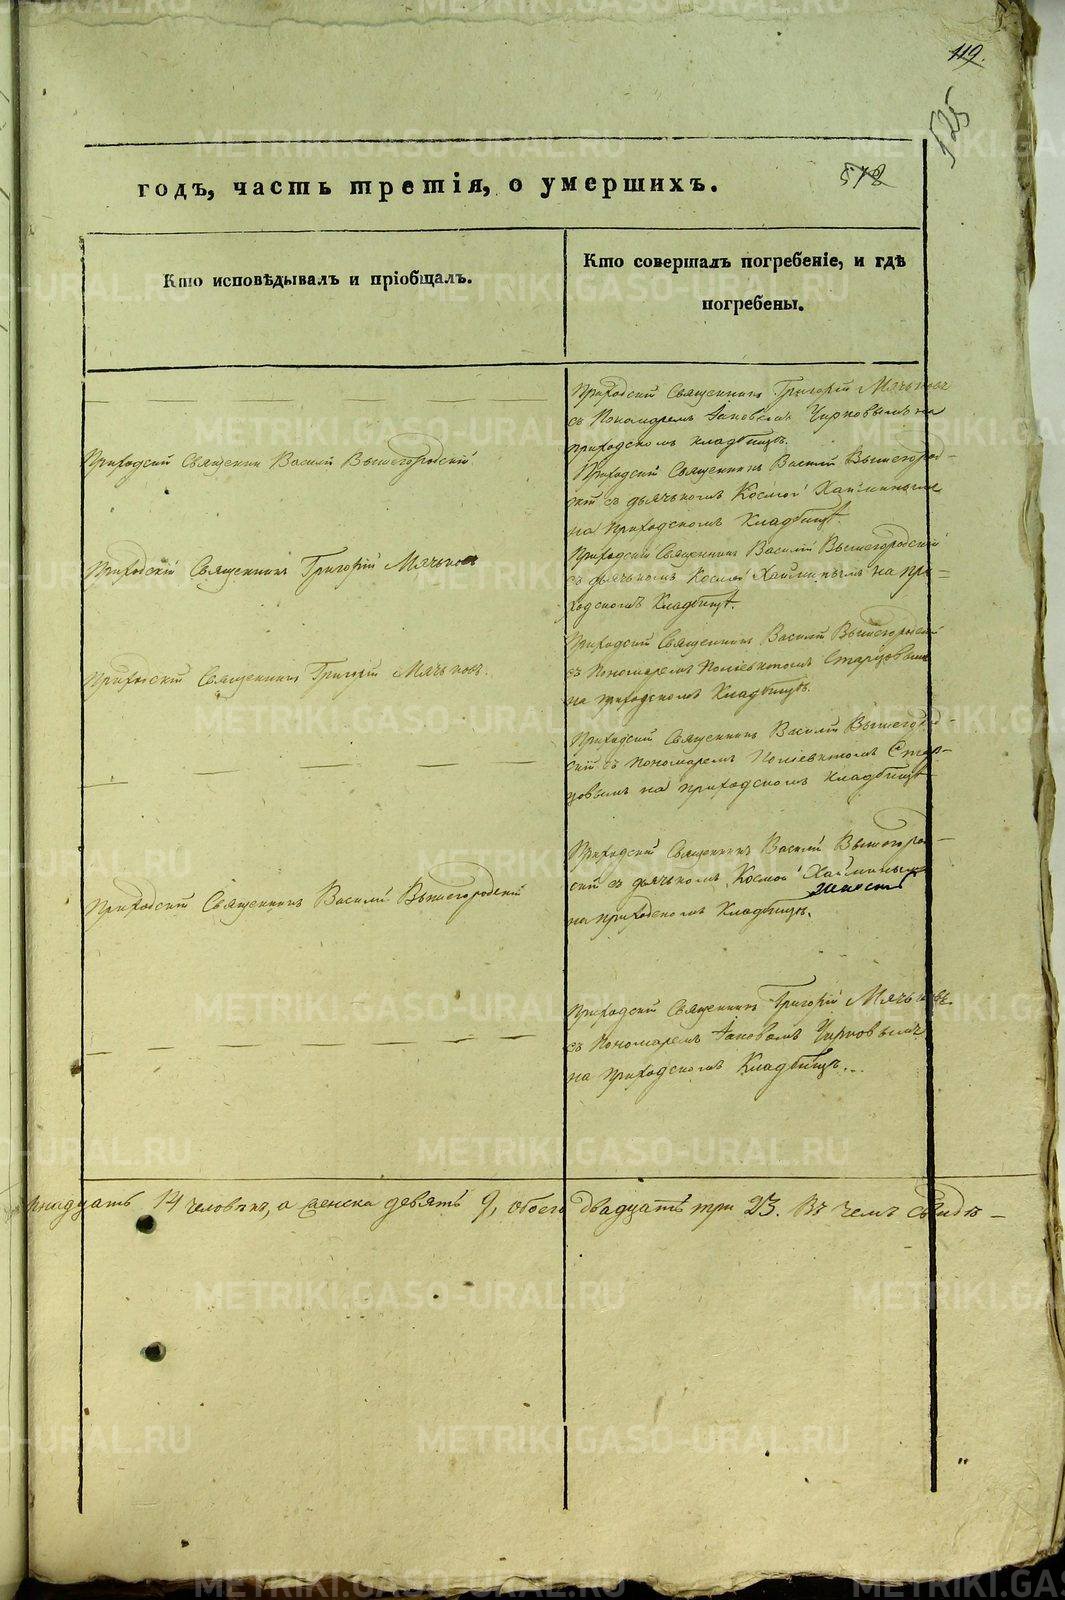 119.
525
годъ, часть третія, о умершихъ.
512
Кто исповѣдывалъ и пріобщалъ.
Кто совершалъ погребеніе, и гдѣ
погребены.
Приходскій Священникъ Григорій Мячьковъ
съ Пономаремъ Іаковомъ Чирковымъ на
приходскомъ кладбищѣ.
Приходскій Священникъ Василій Вышегородскій
Приходскій Священникъ Василій Вышегород-
скій съ дьячькомъ Космой
на Приходскомъ Кладбищѣ.
Приходскій Священникъ Григорій Мячьковъ
Приходскій Священникъ Василій Вышегородскій
съ дьячькомъ Космой на При-
ходскомъ Кладбищѣ.
Приходскій Священникъ Григорій Мячьковъ.
Приходскій Священникъ Василій Вышегородскій
съ Пономаремъ Старцовымъ
на приходскомъ Кладбищѣ.
Приходскій Священникъ Василій Вышегород-
скій съ Пономаремъ Стар-
цовымъ на приходскомъ Кладбищѣ
Приходскій Священникъ Василій Вышегородскій
Приходскій Священникъ Василій Вышегород-
скій съ дьячькомъ Космой
на приходскомъ Кладбищѣ.
Приходскій Священникъ Григорій Мячьковъ
съ Пономаремъ Іаковомъ Чирковымъ
на приходскомъ Кладбищѣ...
рнадцать 14 человѣкъ, а женска девять 9, обоего двадцать три 23. Въ чемъ свидѣ-
METRIKI.GASO-URAL.RU